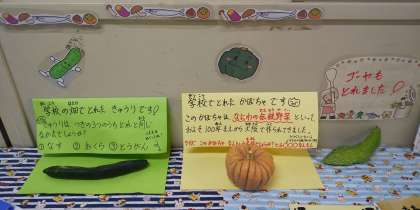 学校の畑でとれた きゅうりです♡
きゅうりは、つぎの3つのうちどれと同じ
なかまでしょうか?
① なす ② おくら ③ とうがん
学校でとれた かぼちゃ です
このかぼちゃは、なにわの伝統野菜 といって
およそ100年まえから 大阪で作られてきました。
ゴーヤも
とれました!